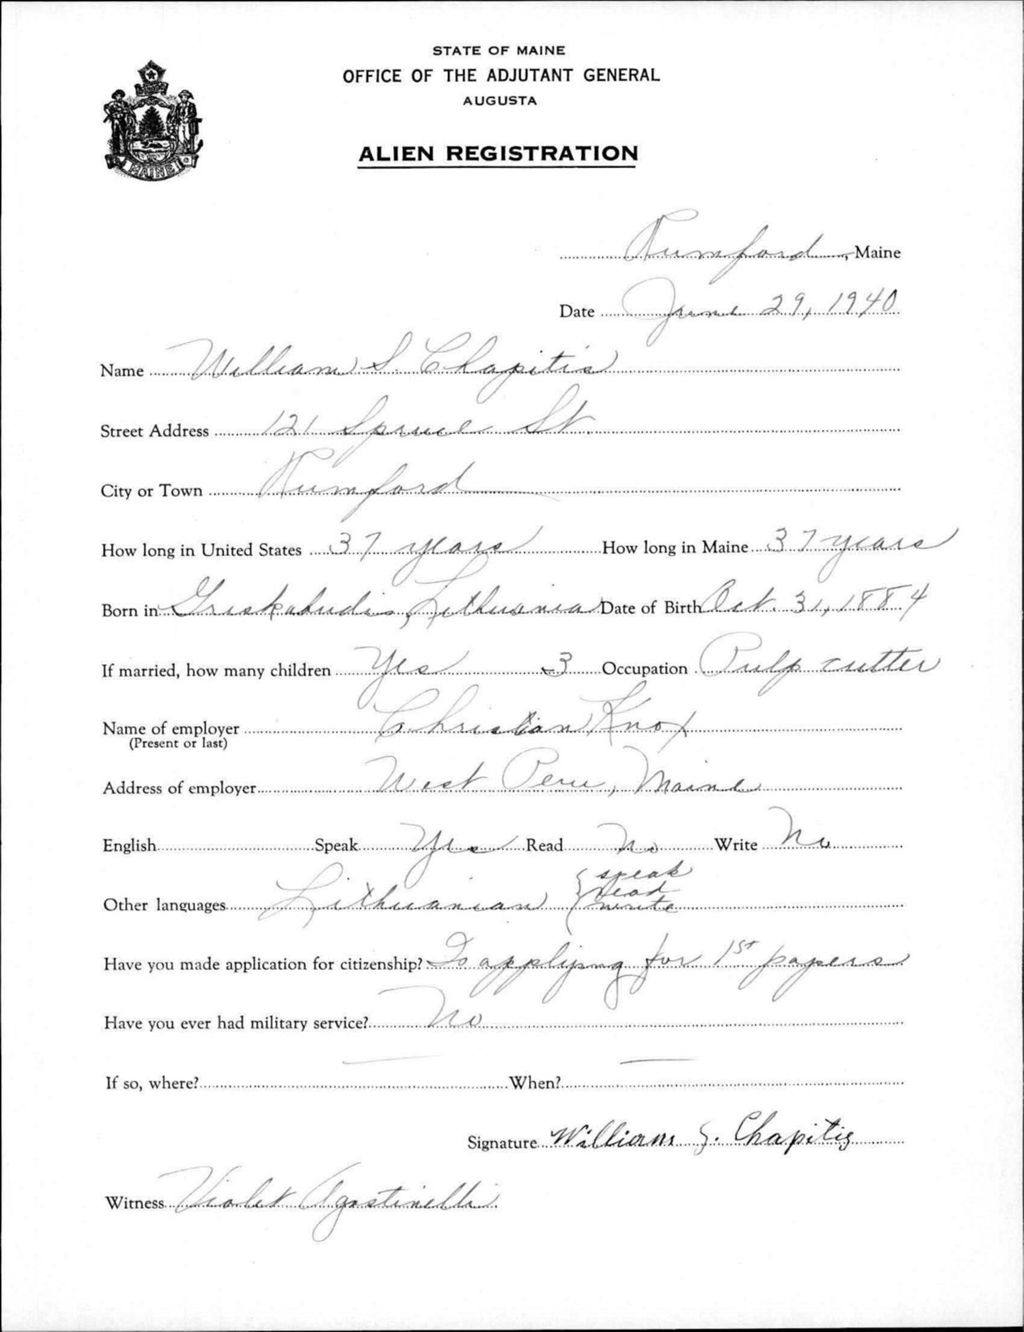 STATE OF MAINE
OFFICE OF THE ADJUTANT GENERAL
AUGUSTA
ALIEN REGISTRATION
MAINE
Rumford, Maine
Date June 29, 1940
Name William S. Chapitis
Street Address 121 Spruce St.
City or Town Rumford
How long in United States 37 years How long in Maine 37 years
Born in Griskabudis, Lithuania Date of Birth Oct. 31, 1884
If married, how many children Yes 3 Occupation Pulp cutter
Name of employer Christian Knox
(Present or last)
Address of employer West Peru, Maine
English Speak Yes Read No Write No
Other languages Lithuanian { speak
read
write
Have you made application for citizenship? Is applying for 1st papers
Have you ever had military service? No
If so, where? — When? —
Signature William S. Chapitis
Witness Violet Agostinelli